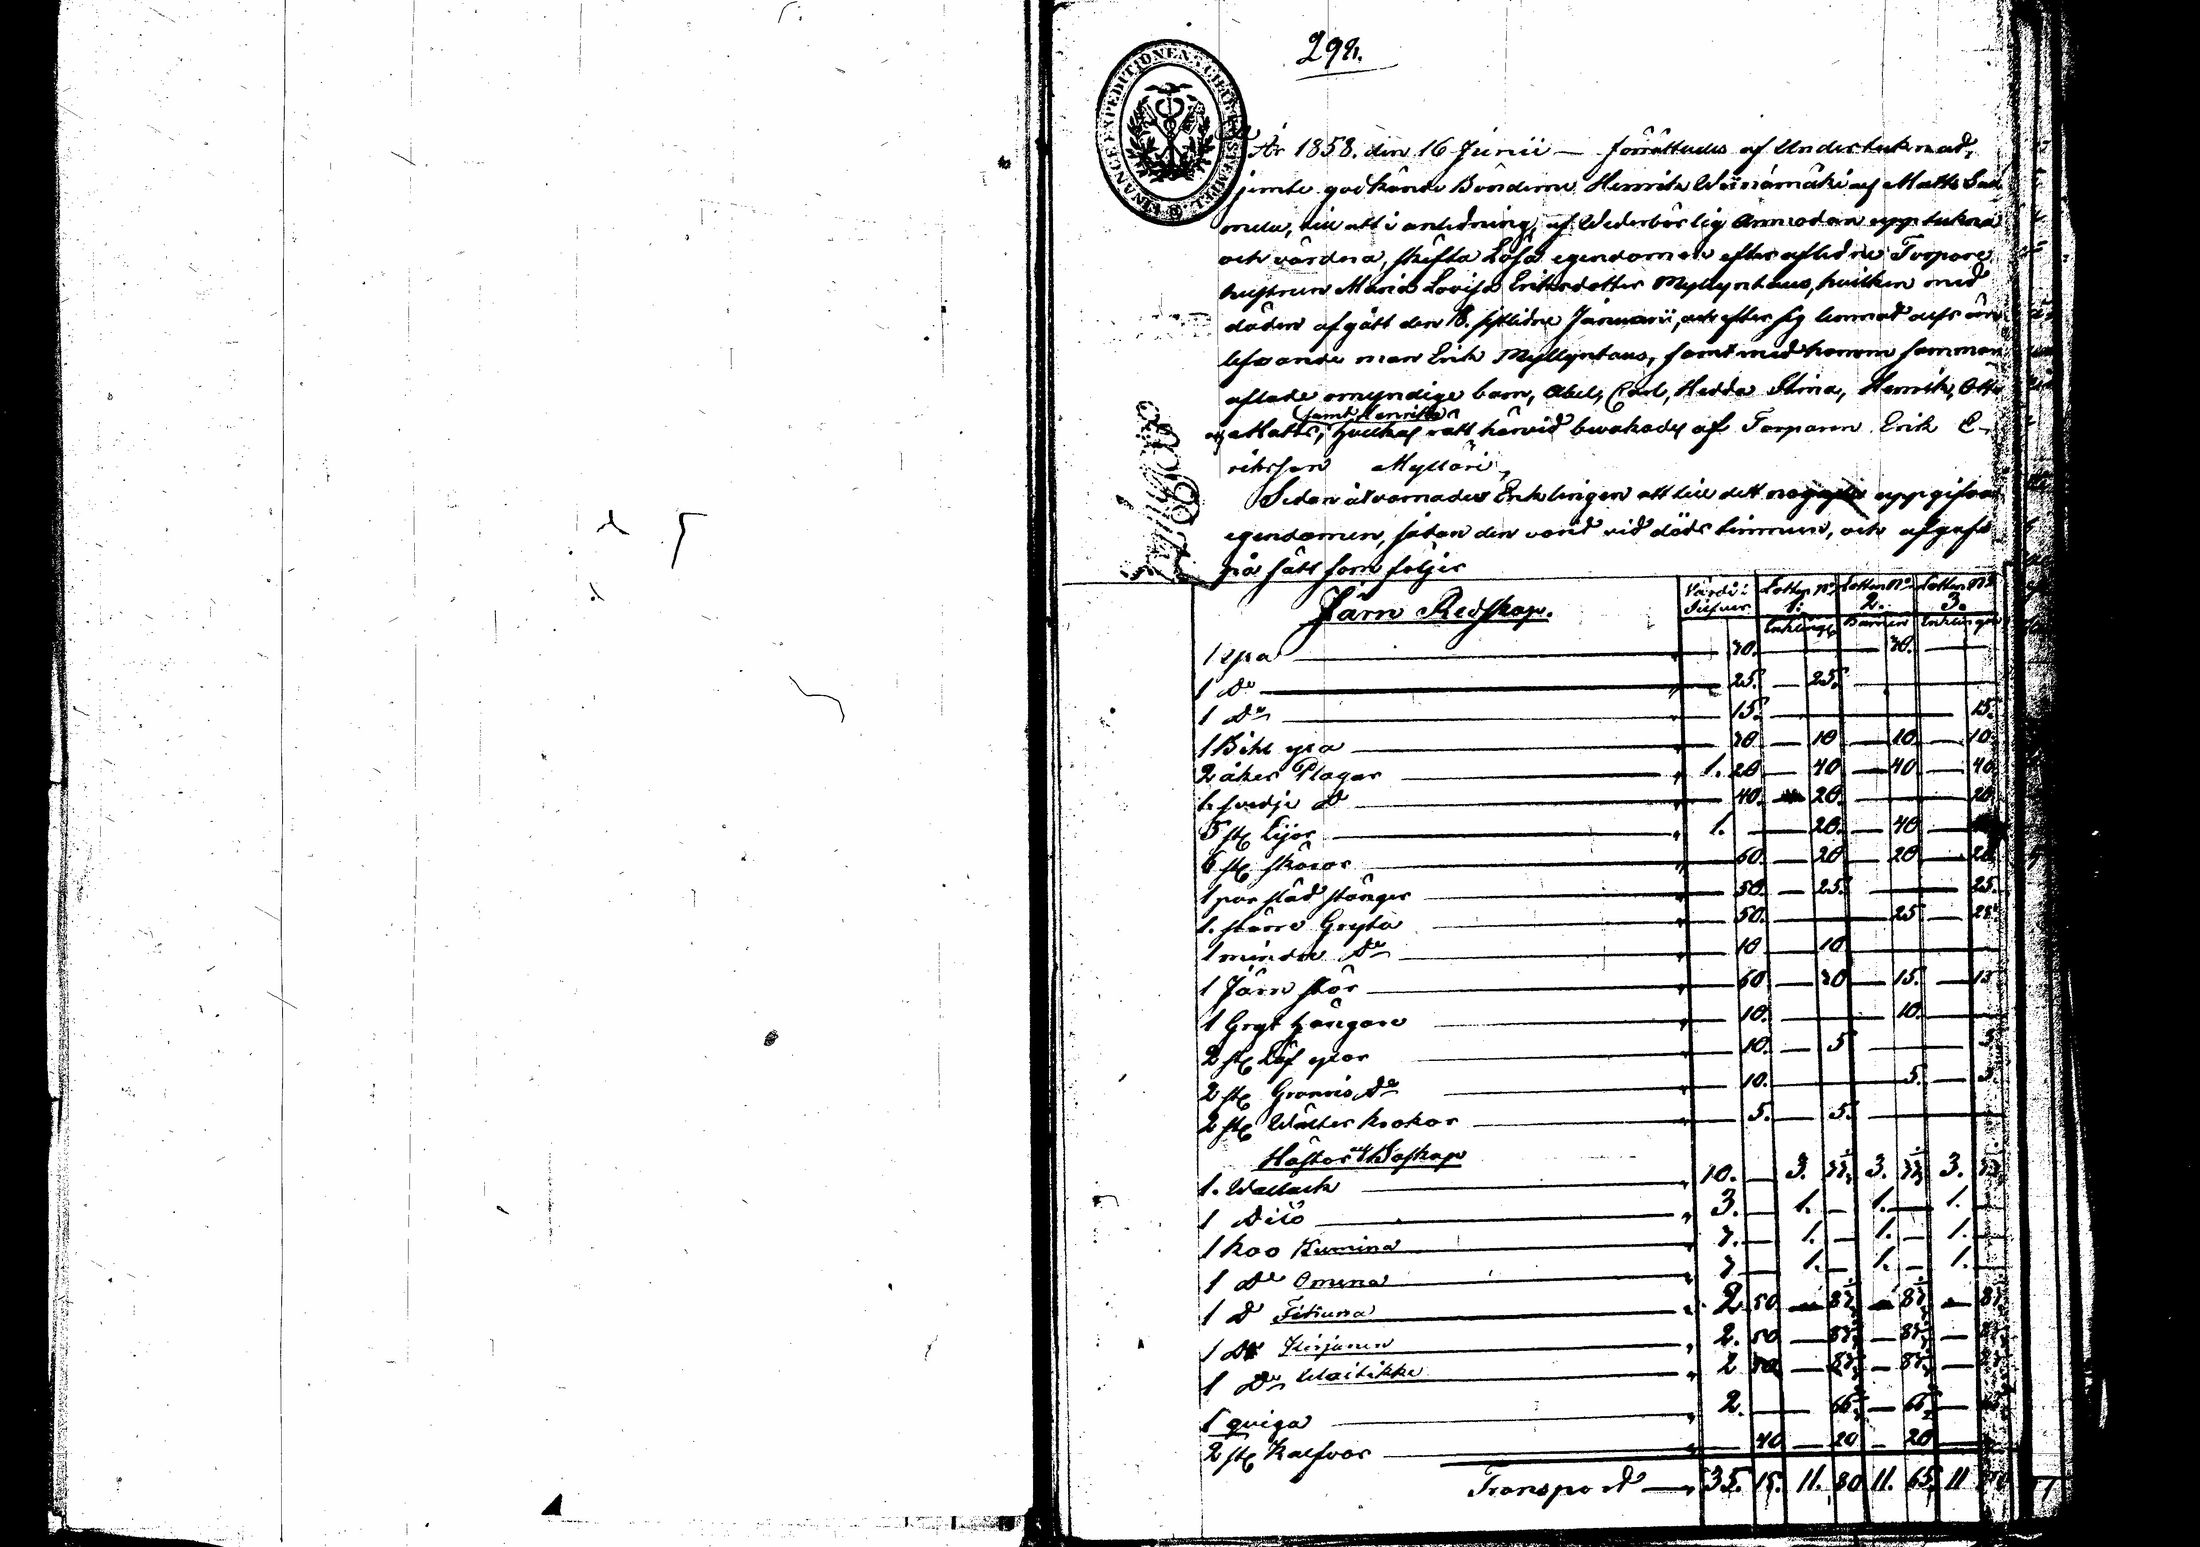 298.
FINANCE EXPEDITIONENS CHARTÆ STEMPEL
År 1858. den 16 Junii — förrättades af Undertecknad,
jemte godkände Bönderne Henrik Wiinamäki af Matts
mela, till att i anledning, af Wederbörlig Anmodan uppteckna
och värdera, skifta Lösa egendomen efter aflidne Torpare
hustrun Maria Lovisa Eriksdotter Myllyntaus, hvilken med
döden afgått den 18. sistlidne Januarii, och efter sig lemnat
lefvande man Erik Myllyntaus, samt med honom samman
aflade omyndige barn, Abel, Carl, Hedda Stina, Henrik, Otto
samt Henrika
Matts, hvilkas rätt härvid bevakades af Torparen Erik E-
riksson Mylläri,
Sedan åtvarnades Enklingen att till det uppgifva
egendomen, sådan den varit vid döds timmen, och afgafs
på sätt som följer
Järn Redskap.
Värde i Silfver
Lotten No 1. Enklings
Lotten No 2. Barnen
Lotten No 3. Enklingen
1 yxa — 30. — 30.
1 Do — 25. — 25.
1 Do — 15. — 15.
1 Bihl yxa — 30 — 10 — 10 — 10.
2 åker Plogar — 1. 20 — 40 — 40 — 40.
svedje Do — 40. — 20. — 20
5 st Lijor — 1. — 20. — 40
6 st skäror — 60. — 20 — 20 — 20.
1 par städ stänger — 50. — 25. — 25.
1. större Gryta — 50. — 25 — 25.
1 mindre Do — 10 — 10
1 Järn stör — 60 — 30 — 15. — 15
1 Gryt hängare — 10. — 10.
2 st Löf yxor — 10. — 5 — 5
2 st Do — 10. — 5. — 5.
2 st Krokor — 5. — 5.
Hästar och Boskap
1. Wallack — 10. — 3. 33⅓ 3. 33⅓ 3. 33⅓
1 Dito — 3. — 1. — 1. — 1.
1 koo Kumina — 3. — 1. — 1. — 1.
1 Do Omena — 3 — 1. — 1. — 1.
1 Do — 2. 50 — 83⅓ — 83⅓ — 83⅓
1 Do Kirjanen — 2. 50 — 83⅓ — 83⅓ — 83⅓
1 Do Waitikki — 2 50 — 83⅓ — 83⅓ — 83⅓
1 qviga — 2. — 66⅔ — 66⅔
2 st Kalfvar — 40 — 20 — 20
Transport — 35. 15. 11. 80 11. 65. 11